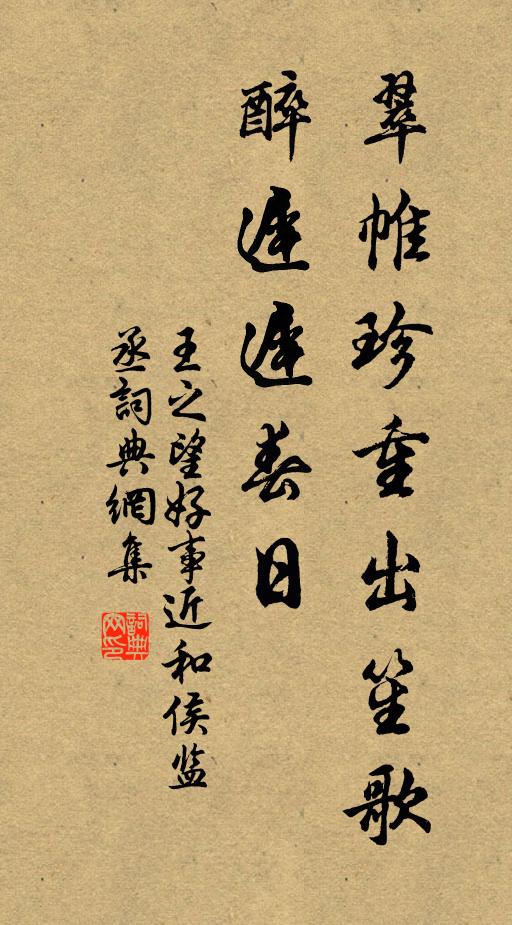 翠帷珍重出笙歌
醉遲遲春日
王之望好事近和侯监
丞詞典網集
詞典
网印